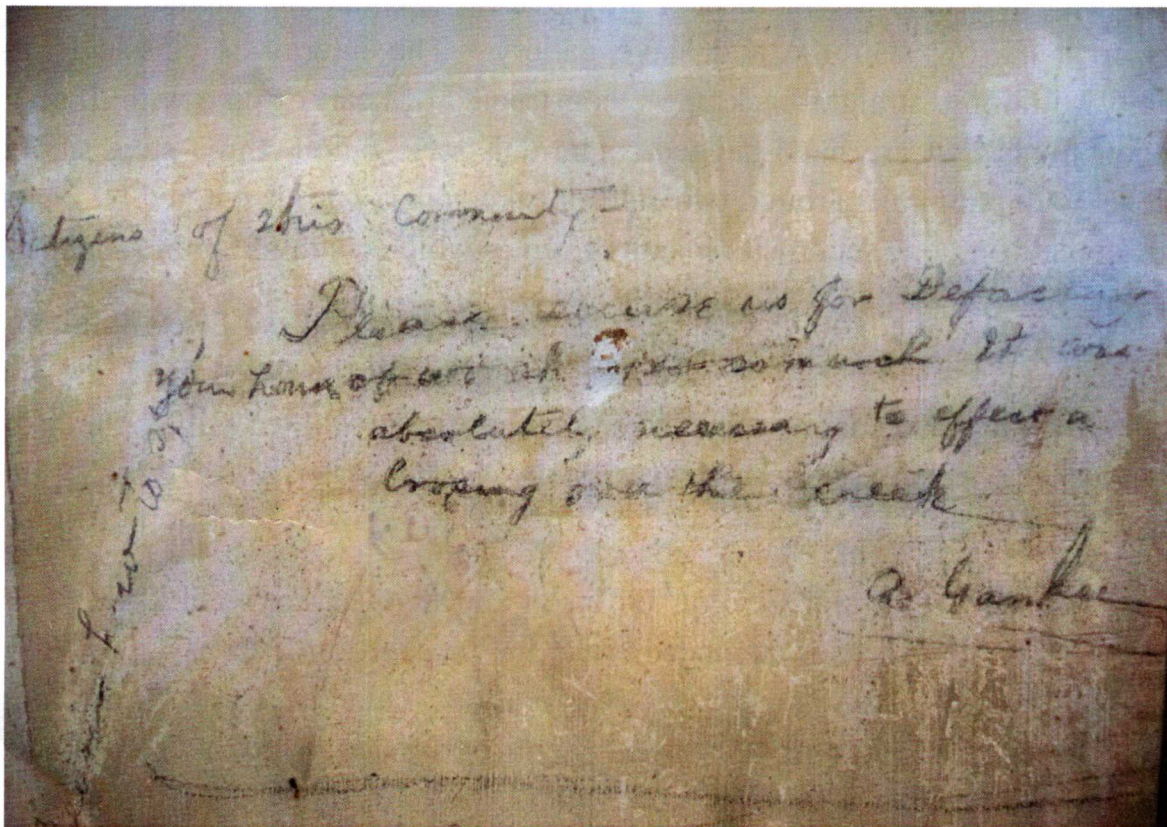 Citizens of this Community -
Please excuse us for Defacing
your house of worship so much It was
absolutely necessary to effect a
Crossing over the creek
A. Yankee